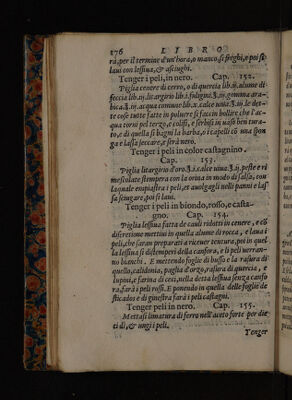 176 LIBRO
rà, per il termine d'un'hora, o manco si freghi, e poi si
laui con lessiua, & asciughi.
Tenger i peli, in nero. Cap. 152.
Piglia cenere di cerro, o di quercia lib. iij. alume di
feccia lib. ij. litargirio lib. i. fuligini ℥.ij. gomma ara-
bica ℥.ij. acqua commune lib. x. calce uiua ℥.ij. le det-
te cose tutte fatte in poluere si faccin bollire che l'ac
qua torni pel terzo, e colisi, e serbisi in uasi ben tura-
to, e di quella si bagni la barba, o i capelli cō una spon
ga e lassa seccare, e serà nero.
Tenger i peli in color castagnino.
Cap. 153.
Piglia litargirio d'oro, ℥.i. calce uiua. ℥.ij. peste e
mescolate stempera con la orina in modo di salsa, con
laquale empiastra i peli, et auolgagli nelli panni e las'
sa sciugare, poi si laui.
Tenger i peli in biondo, rosso, e casta-
gno. Cap. 154.
Piglia lessiua fatta de caudi ridotti in cenere, e cō
discretione mettiui in quella alume di rocca, e laua i
peli, che saran preparati a riceuer tentura, poi in quel
la lessiua si distemperi della canfora, e li peli uerran-
no bianchi. E mettendo foglie di busso e la rasura di
quello, calidonia, paglia d'orgo, rasura di quercia, e
lupini, e farina di ceci, nella detta lessiua senza canfo
ra, farà i peli rossi. E ponendo in quella delle foglie de
sticados e di ginestra farà i peli castagni.
Tenger peli in nero. Cap. 155.
Mettasi limatura di ferro nell'aceto forte per die
ci dì, & ungi i peli.
Tenger